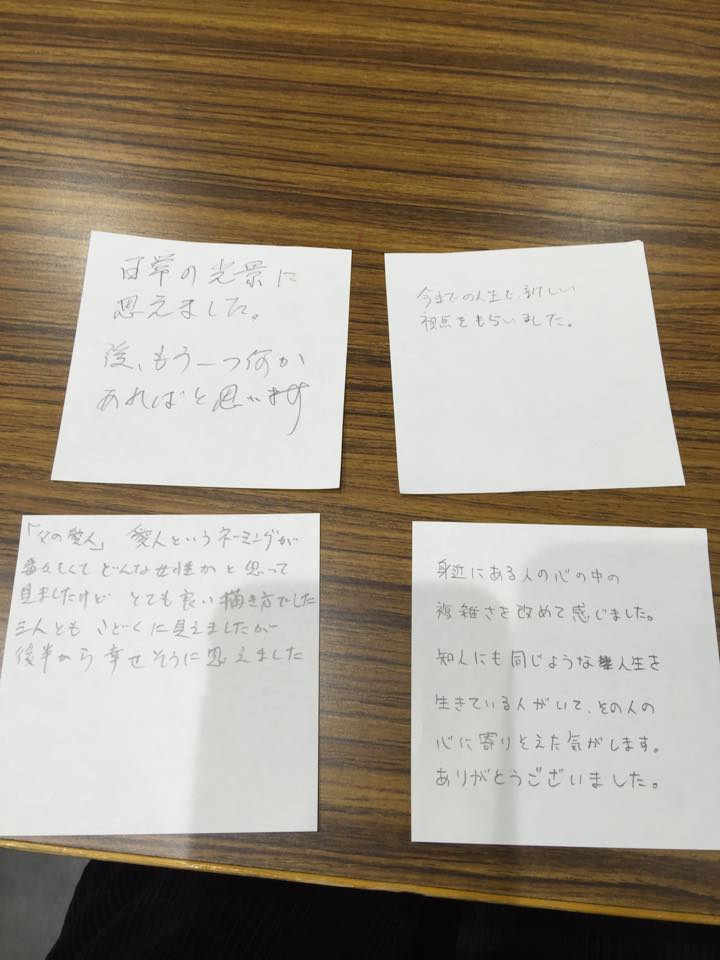 日常の光景に
思えました。
後、もう一つ何か
あればと思います
今までの人生で、新しい
視点をもらいました。
「父の愛人」 愛人というネーミングが
毒々しくてどんな女性かと思って
見ましたけど とても良い描き方でした
三人とも こどくに見えましたが
後半から幸せそうに思えました
身近にある人の心の中の
複雑さを改めて感じました。
知人にも同じような人生を
生きている人がいて、その人の
心に寄りそえた気がします。
ありがとうございました。